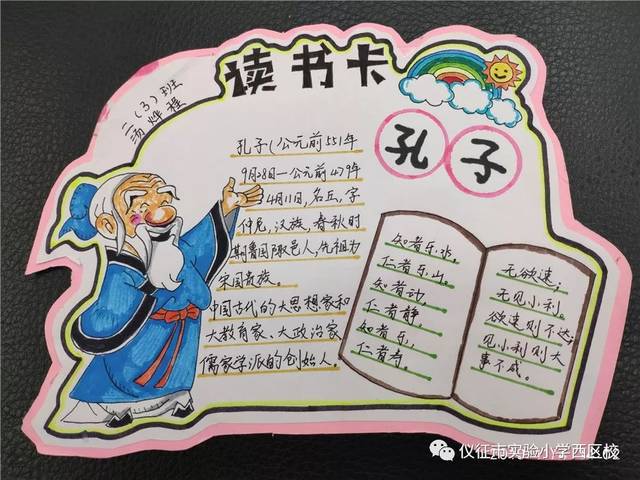 读书卡
二（3）班
汤烨程
孔子
孔子（公元前551年
9月28日—公元前479年
4月11日，名丘，字
仲尼，汉族，春秋时
期鲁国陬邑人，先祖为
宋国贵族。
中国古代的大思想家和
大教育家、大政治家
儒家学派的创始人。
知者乐水。
仁者乐山。
知者动，
仁者静，
知者乐，
仁者寿。
无欲速；
无见小利。
欲速则不达；
见小利则大
事不成。
仪征市实验小学西区校